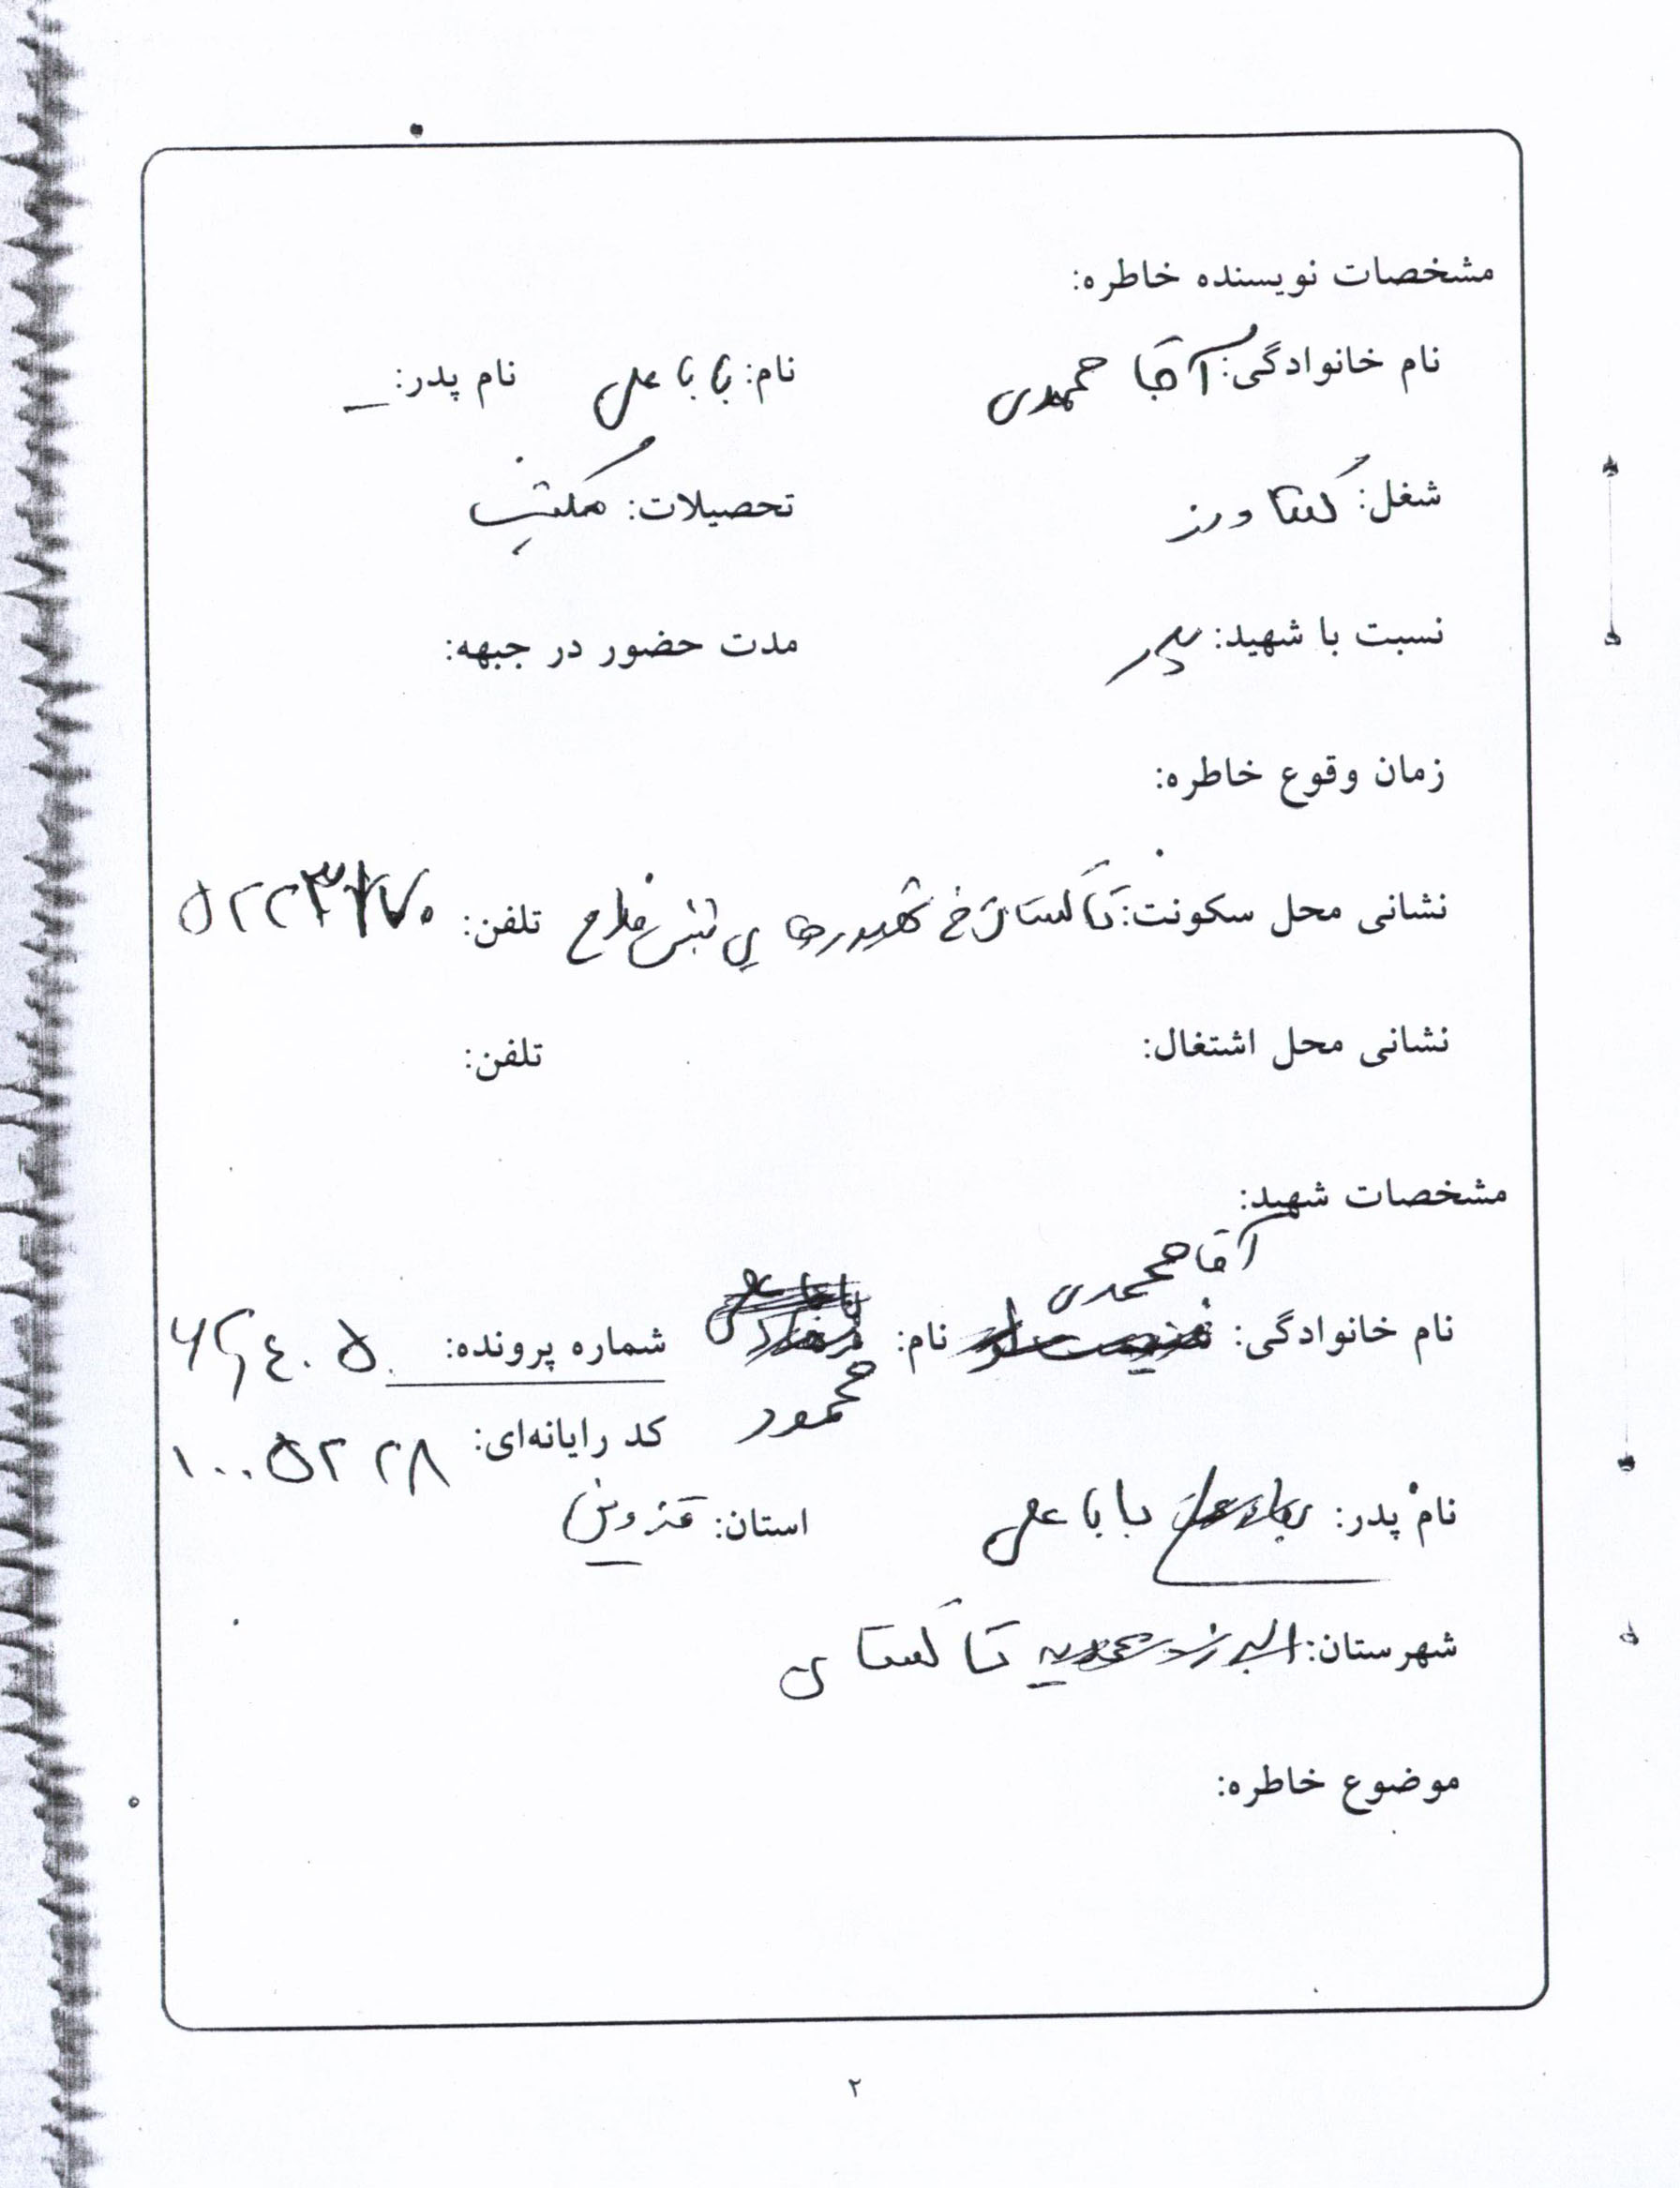 مشخصات نویسنده خاطره:
نام خانوادگی: آقا محمدی نام: بابا علی نام پدر: _
شغل: کشاورز تحصیلات: مکتب
نسبت با شهید: پدر مدت حضور در جبهه:
زمان وقوع خاطره:
نشانی محل سکونت: تاکستان خ نبش فلاح تلفن:
نشانی محل اشتغال: تلفن:
مشخصات شهید:
آقا محمدی
نام خانوادگی: نام: شماره پرونده:
محمود
کد رایانه‌ای: ۱۰۰۵۲۲۸
نام پدر: بابا علی استان: قزوین
شهرستان: تاکستان
موضوع خاطره:
۲